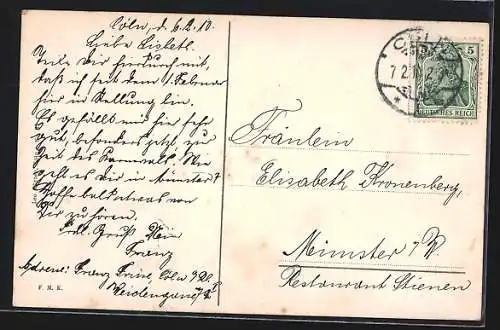 Cöln, d. 6.2.10.
Liebe Liesbetl.
Teile Dir hierdurch mit,
daß ich seit dem 1. Februar
hier in Stellung bin.
Es gefällt mir hier sehr
gut, besonders jetzt, zur
Zeit des Karneval. Wie
geht es Dir in Münster?
Hoffe bald etwas von
Dir zu hören.
Gruß Dein
Franz
Adresse: Franz Cöln a Rh.
Weidengasse
F. M. K.
CÖLN
7.2.10
5 5
DEUTSCHES REICH
Fräulein
Elisabeth Kronenberg,
Münster i/W.
Restaurant Stienen